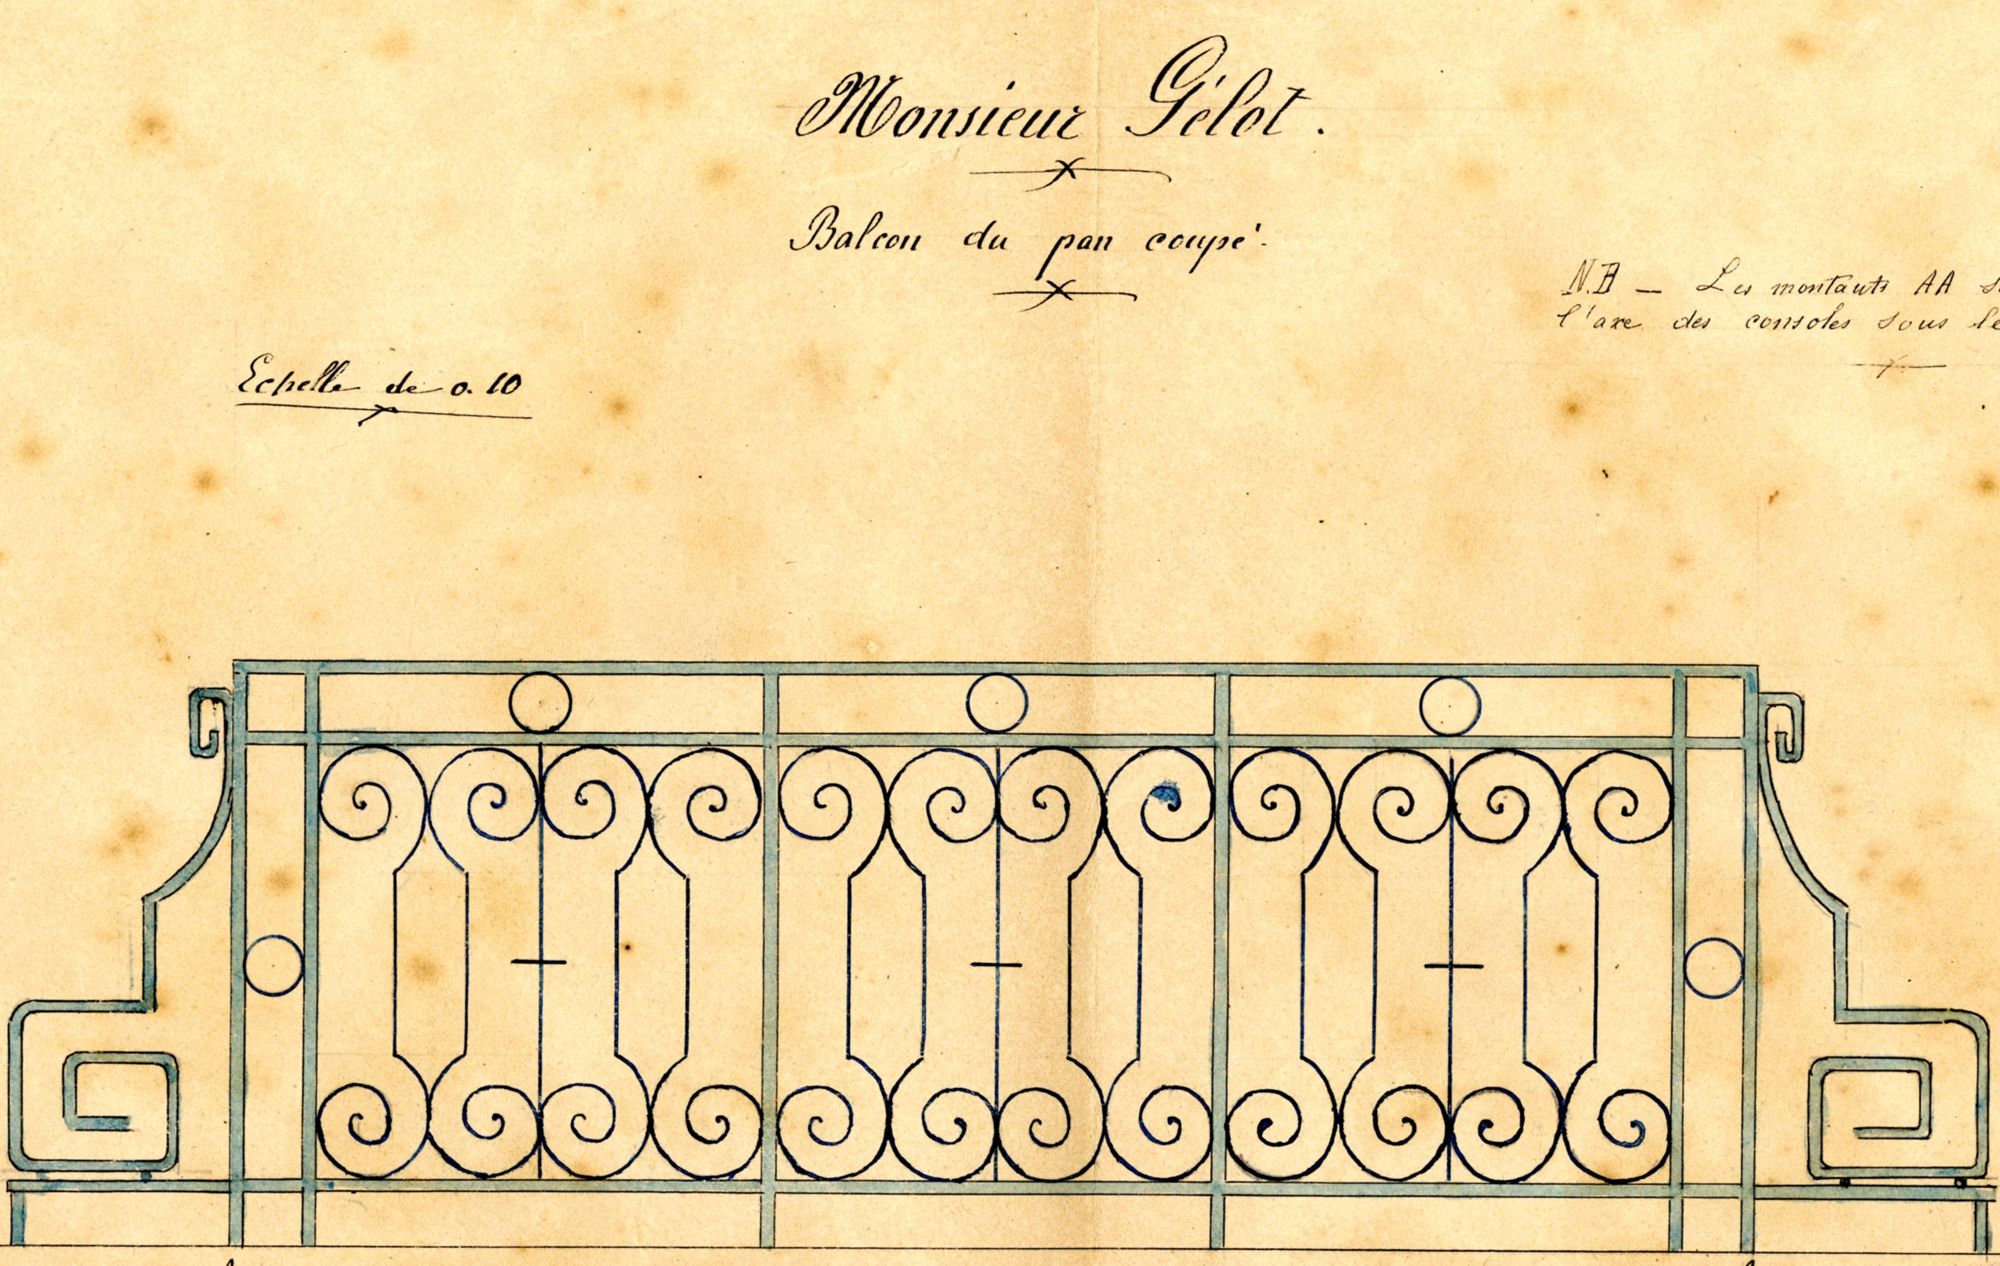 Monsieur Gélot.
Balcon du pan coupé.
N.B — Les montants AA
l'axe des consoles sous le
Echelle de 0.10